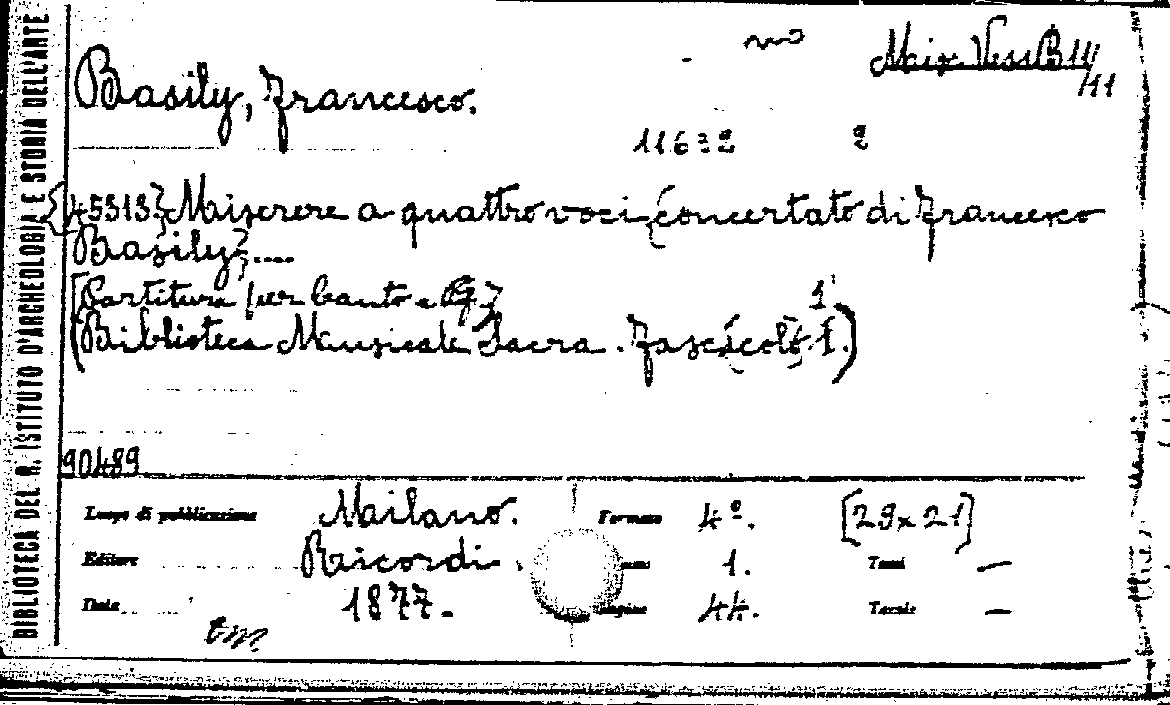 BIBLIOTECA DEL R. ISTITUTO D'ARCHEOLOGIA E STORIA DELL'ARTE
Basily, Francesco.
11632 2
{45313} Miserere a quattro voci concertato di Francesco
Basily; ....
[Partitura per Canto e Pf.]
(Biblioteca Musicale Sacra. Fascicolo 1.)
90489
Luogo di pubblicazione Milano. Formato 4º. [29x21]
Editore Ricordi 1. Tomi —
Data 1877. Pagine 44. Tavole —